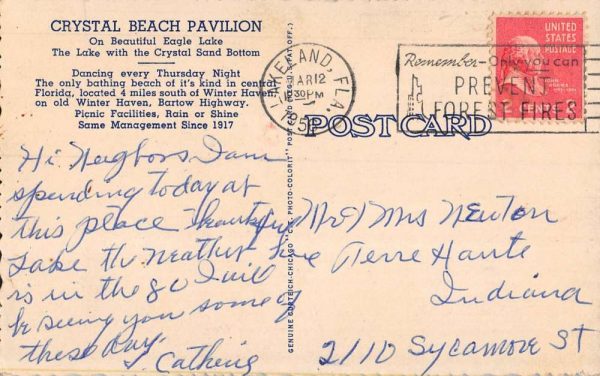 CRYSTAL BEACH PAVILION
On Beautiful Eagle Lake
The Lake with the Crystal Sand Bottom
Dancing every Thursday Night
The only bathing beach of it's kind in central
Florida, located 4 miles south of Winter Haven,
on old Winter Haven, Bartow Highway.
Picnic Facilities, Rain or Shine
Same Management Since 1917
Hi Neigbors I am
spending today at
this place beautiful
Lake the Weather here
is in the 80 I will
be seeing you some of
these day.
GENUINE CURTEICH-CHICAGO "C.T. PHOTO-COLORIT" POST CARD (REG. U.S. PAT. OFF.)
POST CARD
LAKELAND, FLA.
MAR 12
30 PM
Remember-Only you can
PREVENT
FOREST FIRES
UNITED
STATES
POSTAGE
Mr & Mrs Newton
Terre Haute
Indiana
2110 Sycamore St